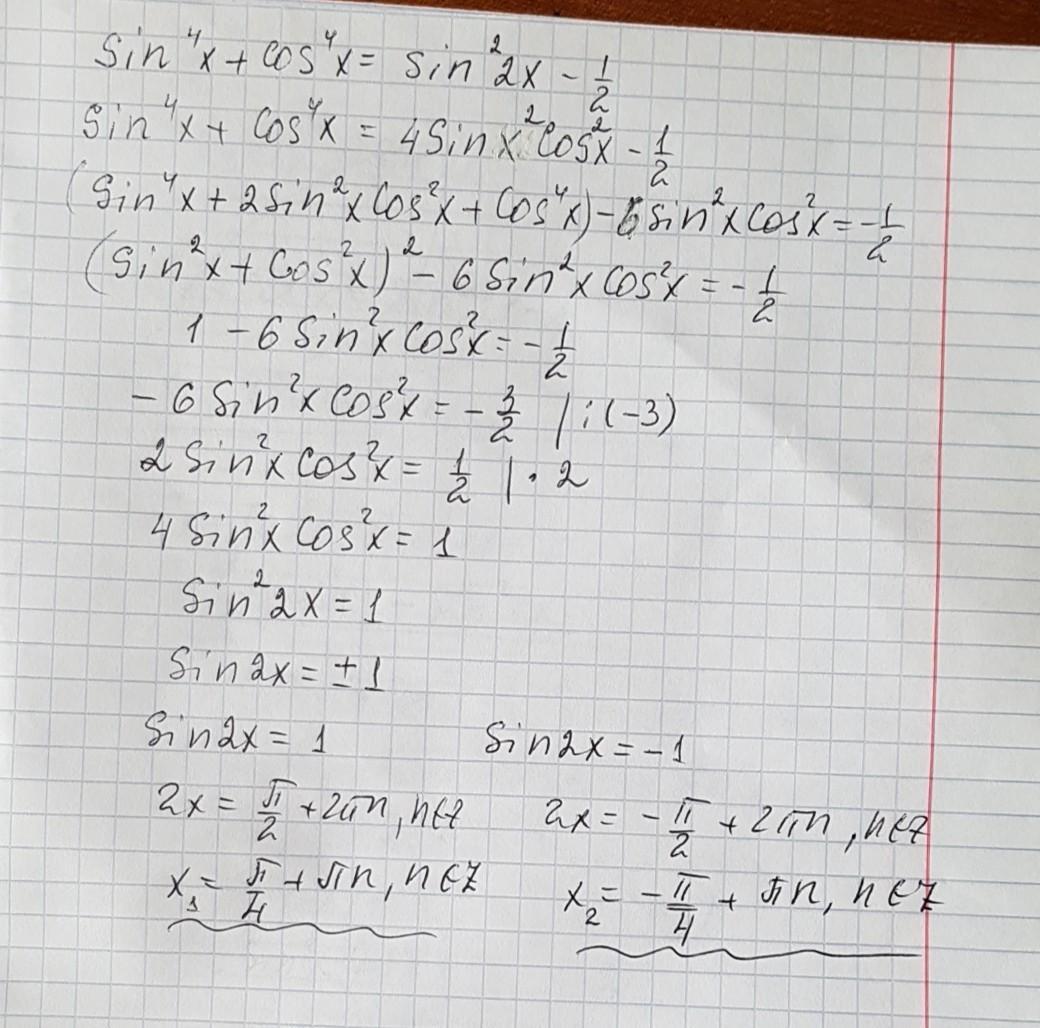 sin⁴x + cos⁴x = sin²2x - 1/2
sin⁴x + cos⁴x = 4sinx² cos²x - 1/2
(sin⁴x + 2sin²x cos²x + cos⁴x) - 6sin²x cos²x = -1/2
(sin²x + cos²x)² - 6sin²x cos²x = -1/2
1 - 6sin²x cos²x = -1/2
-6sin²x cos²x = -3/2 |:(-3)
2sin²x cos²x = 1/2 |·2
4sin²x cos²x = 1
sin²2x = 1
sin2x = ±1
sin2x = 1 sin2x = -1
2x = π/2 + 2πn, n∈Z 2x = -π/2 + 2πn, n∈Z
x₁ = π/4 + πn, n∈Z x₂ = -π/4 + πn, n∈Z